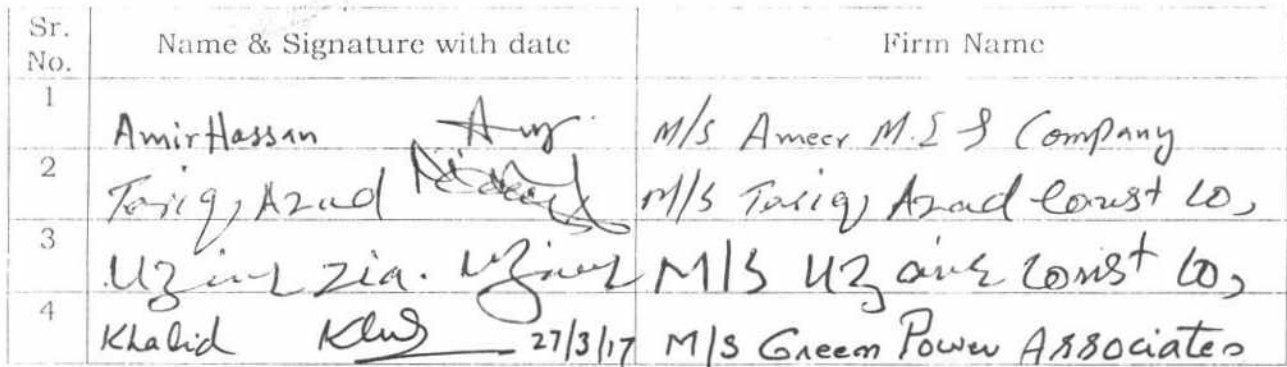 Sr. No. Name & Signature with date Firm Name
1 Amir Hassan M/S Ameer M.E S Company
2 Tariq Azad M/S Tariq Azad Const Co,
3 Uzair Zia. M/S Uzair Const Co,
4 Khalid 27/3/17 M/S Green Power Associates